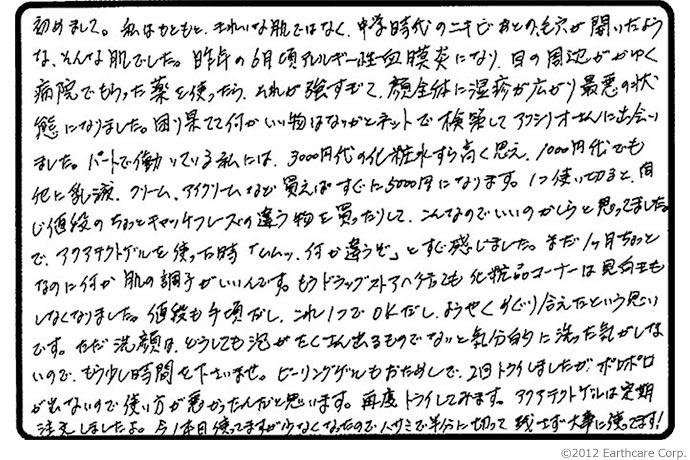 初めまして。私はもともと、きれいな肌ではなく、中学時代のニキビあとの、毛穴が開いたよう
な、そんな肌でした。昨年の6月頃アレルギー性血膜炎になり、目の周辺がかゆく
病院でもらった薬を使ったら、それが強すぎて、顔全体に湿疹が広がり最悪の状
態になりました。困り果てて何かいい物はないかとネットで検索してアクシリオさんに出会い
ました。パートで働いている私には、3000円代の化粧水すら高く思え、1000円代でも
他に乳液、クリーム、アイクリームなど買えばすぐに5000円になります。1つ使い切ると、同
じ値段のちょっとキャッチフレーズの違う物を買ったりして、こんなのでいいのかしらと思ってました。
で、アクアテクトゲルを使った時「ムムッ、何か違うぞ」とすぐ感じました。まだ1ヶ月ちょっと
なのに何か肌の調子がいいんです。もうドラッグストアへ行っても化粧品コーナーは見向きも
しなくなりました。値段も手頃だし、これ1つでOKだし、ようやくめぐり合えたという思い
です。ただ洗顔は、どうしても泡がたくさん出るものでないと気分的に洗った気がしな
いので、もう少し時間を下さいませ。ピーリングゲルもおためしで、2回トライしましたが、ポロポロ
が出ないので使い方が悪かったんだと思います。再度トライしてみます。アクアテクトゲルは定期
注文しましたよ。今1本目使ってますが少なくなったのでハサミで半分に切って残さず大事に使ってます!
©2012 Earthcare Corp.